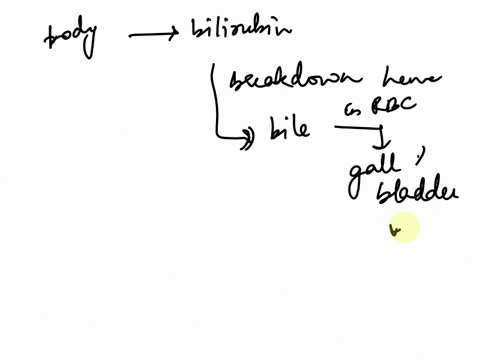 body → bilirubin
breakdown heme
in RBC
bile
gall
bladder